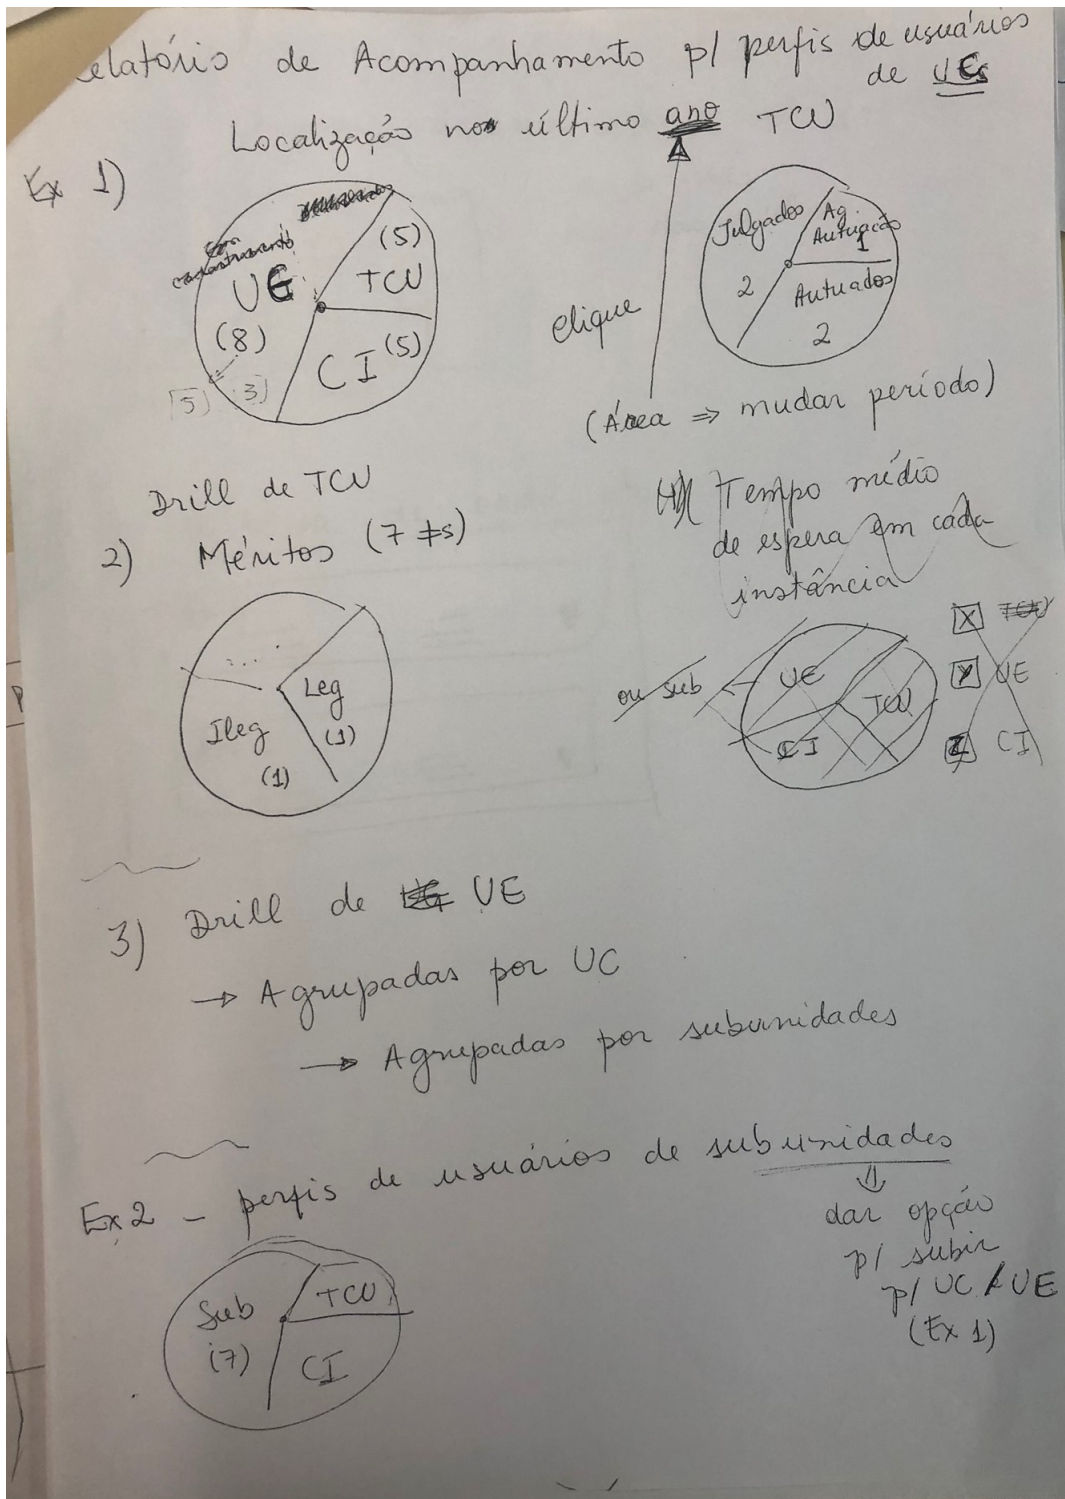 elatório de Acompanhamento p/ perfis de usuários
de UCs
Localização no último ano TCU
Ex 1)
UE
(8)
[5] (3)
(5)
TCU
CI (5)
Julgados
2
Ag.
Autuação
1
Autuados
2
clique
(Área ⇒ mudar período)
Drill de TCU
2) Méritos (7 ≠s)
....
Leg
(1)
Ileg
(1)
Tempo médio
de espera em cada
instância
ou sub ← UE
TCU
CI
X TCU
Y UE
Z CI
3) Drill de UE
→ Agrupadas por UC
→ Agrupadas por subunidades
Ex 2 - perfis de usuários de subunidades
⇓
dar opção
p/ subir
p/ UC / UE
(Ex 1)
Sub
(7)
TCU
CI